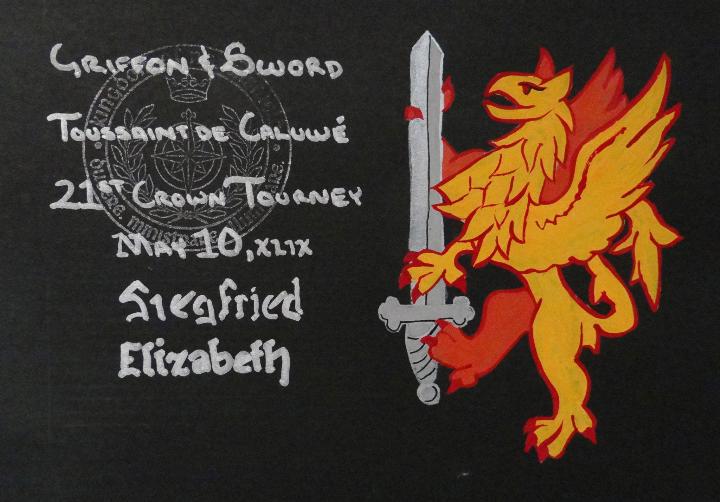 GRIFFON & SWORD
TOUSSAINT DE CALUWÉ
21ST CROWN TOURNEY
MAY 10, XLIX
Siegfried
Elizabeth